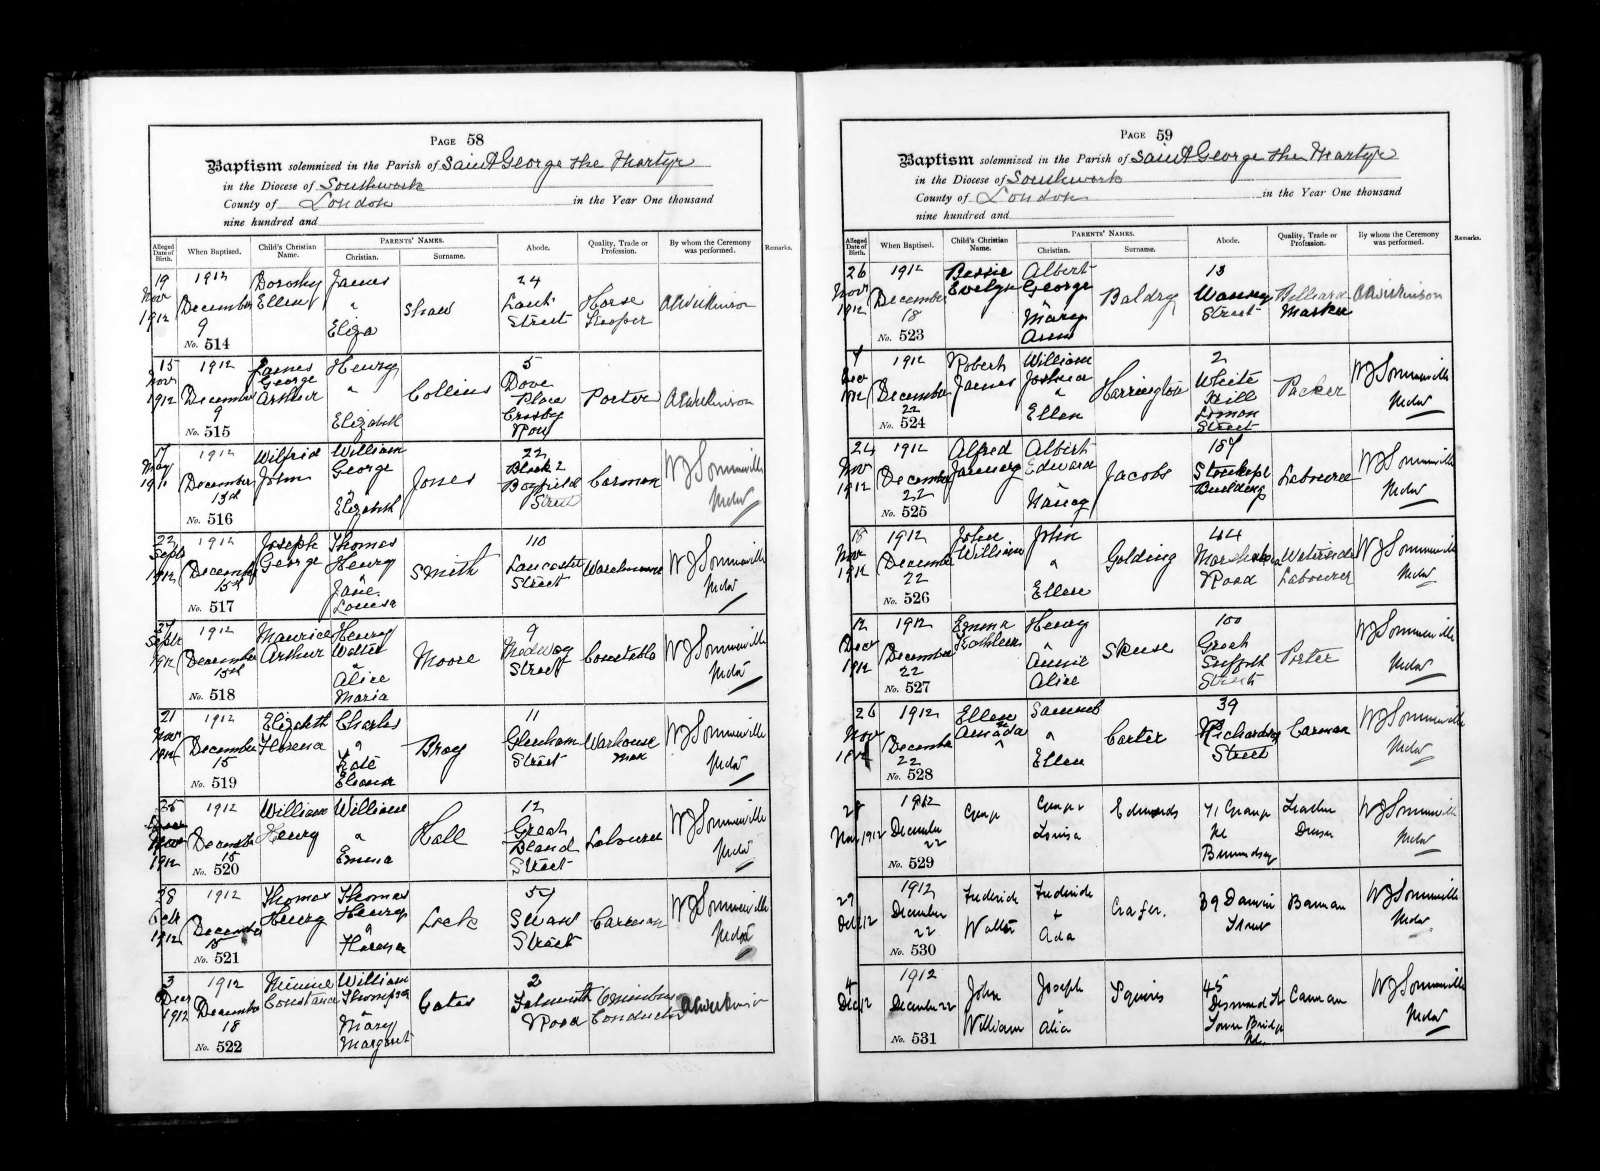 PAGE 58
Baptism solemnized in the Parish of Saint George the Martyr
in the Diocese of Southwark
County of London in the Year One thousand
nine hundred and
Alleged Date of Birth. When Baptised. Child's Christian Name. PARENTS' NAMES. Christian. Surname. Abode. Quality, Trade or Profession. By whom the Ceremony was performed. Remarks.
19 Nov 1912 1912 December 9 No. 514 Dorothy Ellen James " Eliza Shaw 24 Lant Street Horse Keeper A Wilkinson
15 Nov 1912 1912 December 9 No. 515 James George Arthur Henry " Elizabeth Collins 5 Dove Place Crosby Row Porter A Wilkinson
17 May 1911 1912 December 13th No. 516 Wilfrid John William George " Elizabeth Jones 22 Block 2 Boyfield Street Carman W J Sommerville
22 Septr 1912 1912 December 15th No. 517 Joseph George Thomas Henry " Jane Louisa Smith 110 Lancaster Street Warehouseman W J Sommerville
27 Septr 1912 1912 December 15th No. 518 Maurice Arthur Henry Walter " Alice Maria Moore 9 Medway Street Constable W J Sommerville
21 Novr 1912 1912 December 15 No. 519 Elizabeth Florence Charles " Kate Eleanor Bray 11 Glenham Street Warhouse man W J Sommerville
25 Nov 1912 1912 December 15 No. 520 William Henry William " Emma Hall 12 Great Bland Street Labourer W J Sommerville
28 Octr 1912 1912 December 15 No. 521 Thomas Henry Thomas Henry " Florence Lock 57 Swan Street Carman W J Sommerville
3 Decr 1912 1912 December 18 No. 522 Minnie Constance William Thompson " Mary Margaret Gates 2 Falmouth Road Omnibus Conductor A Wilkinson
PAGE 59
Baptism solemnized in the Parish of Saint George the Martyr
in the Diocese of Southwark
County of London in the Year One thousand
nine hundred and
Alleged Date of Birth. When Baptised. Child's Christian Name. PARENTS' NAMES. Christian. Surname. Abode. Quality, Trade or Profession. By whom the Ceremony was performed. Remarks.
26 Novr 1912 1912 December 18 No. 523 Bessie Evelyn Albert George " Mary Ann Baldry 13 Wansey Street Billiard Marker A Wilkinson
4 Decr 1912 1912 December 22 No. 524 Robert James William Joshua " Ellen Harrington 2 White Hill Loman Street Packer W J Sommerville
24 Nov 1912 1912 December 22 No. 525 Alfred January Albert Edward " Nancy Jacobs 157 Building Labourer W J Sommerville
18 Nov 1912 1912 December 22 No. 526 John William John " Ellen Golding 44 Marshalsea Road Waterside Labourer W J Sommerville
12 Decr 1912 1912 December 22 No. 527 Emma Kathleen Henry " Annie Alice Skuse 100 Great Suffolk Street Porter W J Sommerville
26 Novr 1912 December 22 No. 528 Ellen Amanda Samuel " Ellen Carter 39 Richardson Street Carman W J Sommerville
28 Nov 1912 1912 December 22 No. 529 George George + Louisa Edmonds 71 Grange Rd Bermondsey Leather Dresser W J Sommerville
29 Oct 12 1912 December 22 No. 530 Frederick Walter Frederick + Ada Crafer. 39 Street Barman W J Sommerville
4 Dec 12 1912 December 22 No. 531 John William Joseph Alice Squires 45 Desmond St Tower Bridge Rd. Carman W J Sommerville